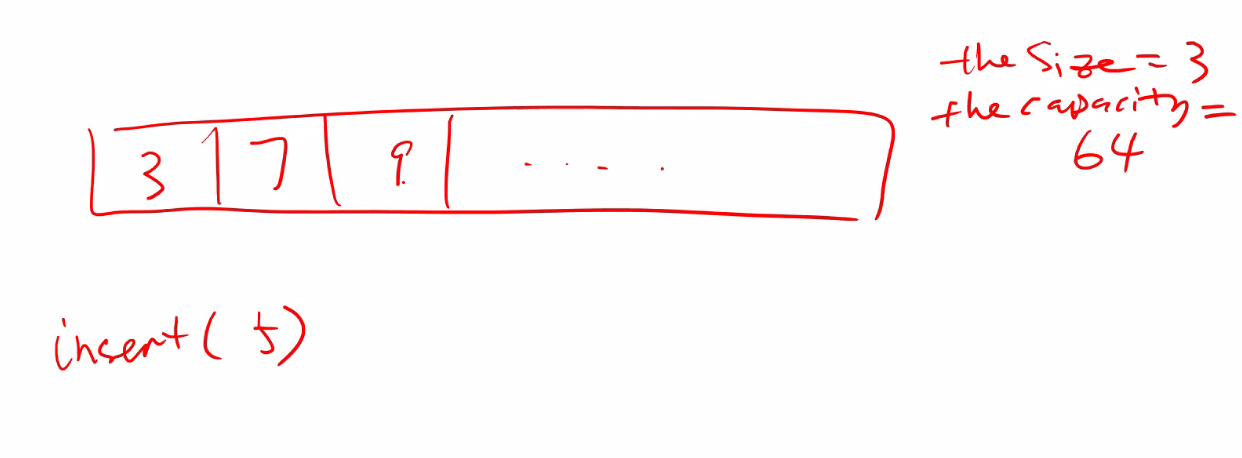 the Size = 3
the capacity =
64
3 7 9 ....
insert( 5)